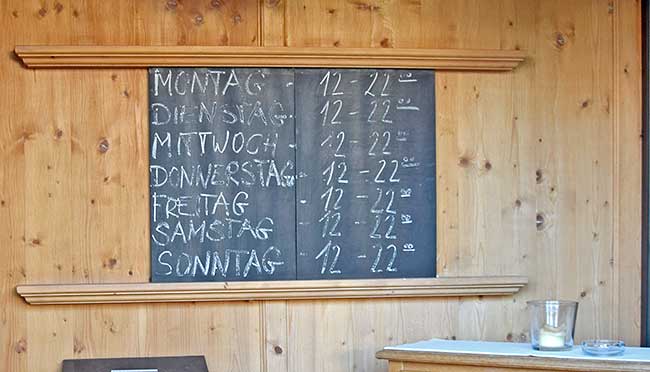 MONTAG - 12 - 22 00
DIENSTAG - 12 - 22 00
MITTWOCH - 12 - 22 00
DONNERSTAG - 12 - 22 00
FREITAG - 12 - 22 00
SAMSTAG - 12 - 22 00
SONNTAG - 12 - 22 00